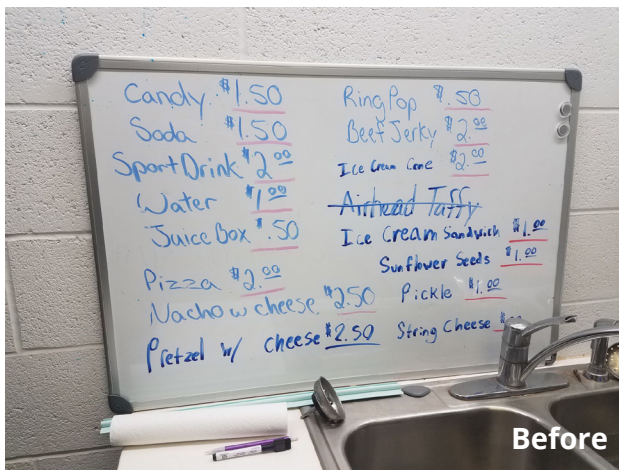 Candy $1.50
Soda $1.50
Sport Drink $2.00
Water $1.00
Juice Box $.50
Pizza $2.00
Nacho w cheese $2.50
Pretzel w/ cheese $2.50
Ring Pop $.50
Beef Jerky $2.00
Ice Cream Cone $2.00
Airhead Taffy
Ice Cream Sandwich $1.00
Sunflower Seeds $1.00
Pickle $1.00
String Cheese
Before